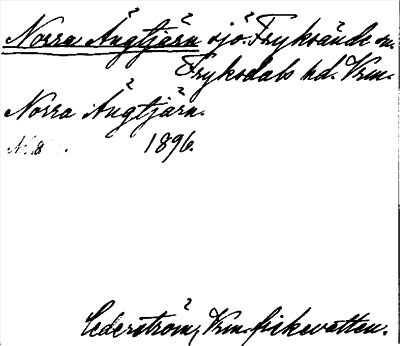 Norra Ängtjärn sjö. Fryksände sn.
Fryksdals hd. Vrm.
Norra Ängtjärn.
1896.
Cederström, Vrm. fiskevatten.